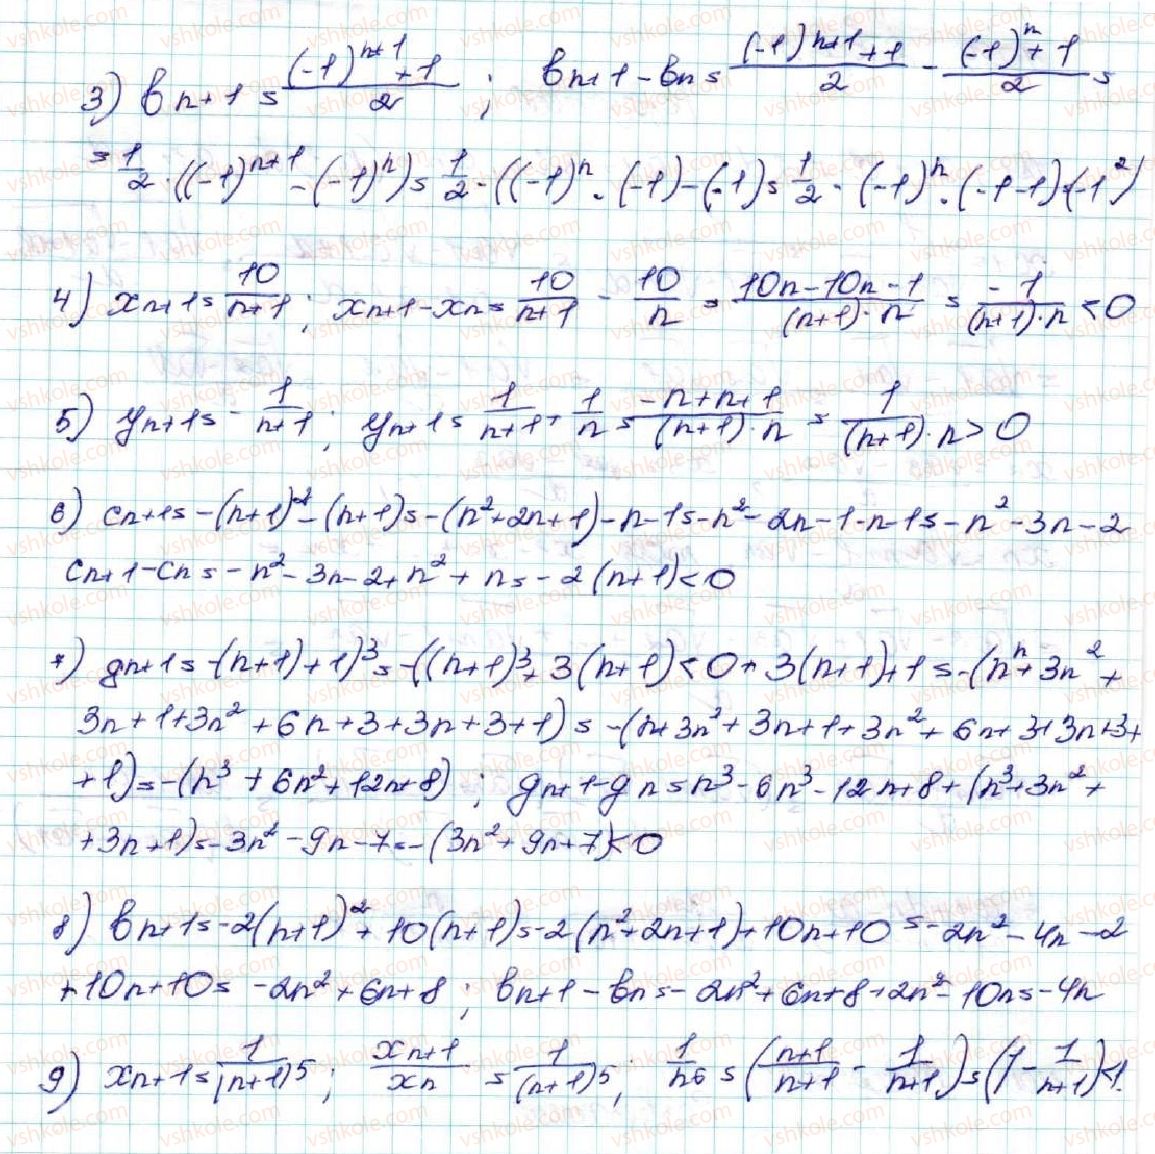 3) bn+1 = ((-1)^(n+1) + 1)/2 ; bn+1 - bn = ((-1)^(n+1) + 1)/2 - ((-1)^n + 1)/2 =
= 1/2 · ((-1)^(n+1) - (-1)^n) = 1/2 · ((-1)^n · (-1) - (-1) = 1/2 · (-1)^n · (-1-1)(-1^2)
4) xn+1 = 10/(n+1) ; xn+1 - xn = 10/(n+1) - 10/n = (10n-10n-1)/((n+1)·n) = -1/((n+1)·n) < 0
5) yn+1 = -1/(n+1) ; yn+1 = 1/(n+1) + 1/n = (-n+n+1)/((n+1)·n) = 1/((n+1)·n) > 0
6) cn+1 = -(n+1)^2 - (n+1) = -(n^2+2n+1) - n - 1 = -n^2 - 2n - 1 - n - 1 = -n^2 - 3n - 2
cn+1 - cn = -n^2 - 3n - 2 + n^2 + n = -2(n+1) < 0
7) gn+1 = -(n+1)+1)^3 = -((n+1)^3 + 3(n+1) < 0 + 3(n+1)+1 = -(n^n + 3n^2 +
3n+1+3n^2+6n+3+3n+3+1) = -(n+3n^2+3n+1+3n^2+6n+3+3n+3+
+1) = -(n^3+6n^2+12n+8) ; gn+1-gn = n^3-6n^3-12n+8+(n^3+3n^2+
+3n+1) = -3n^2-9n-7 = -(3n^2+9n+7) < 0
8) bn+1 = -2(n+1)^2 + 10(n+1) = -2(n^2+2n+1)+10n+10 = -2n^2-4n-2
+10n+10 = -2n^2+6n+8 ; bn+1 - bn = -2n^2+6n+8+2n^2-10n = -4n
9) xn+1 = 1/(n+1)5 ; xn+1/xn = 1/(n+1)5 ; 1/n5 = ((n+1)/(n+1) - 1/(n+1)) = (1 - 1/(n+1)) < 1.
vshkole.com